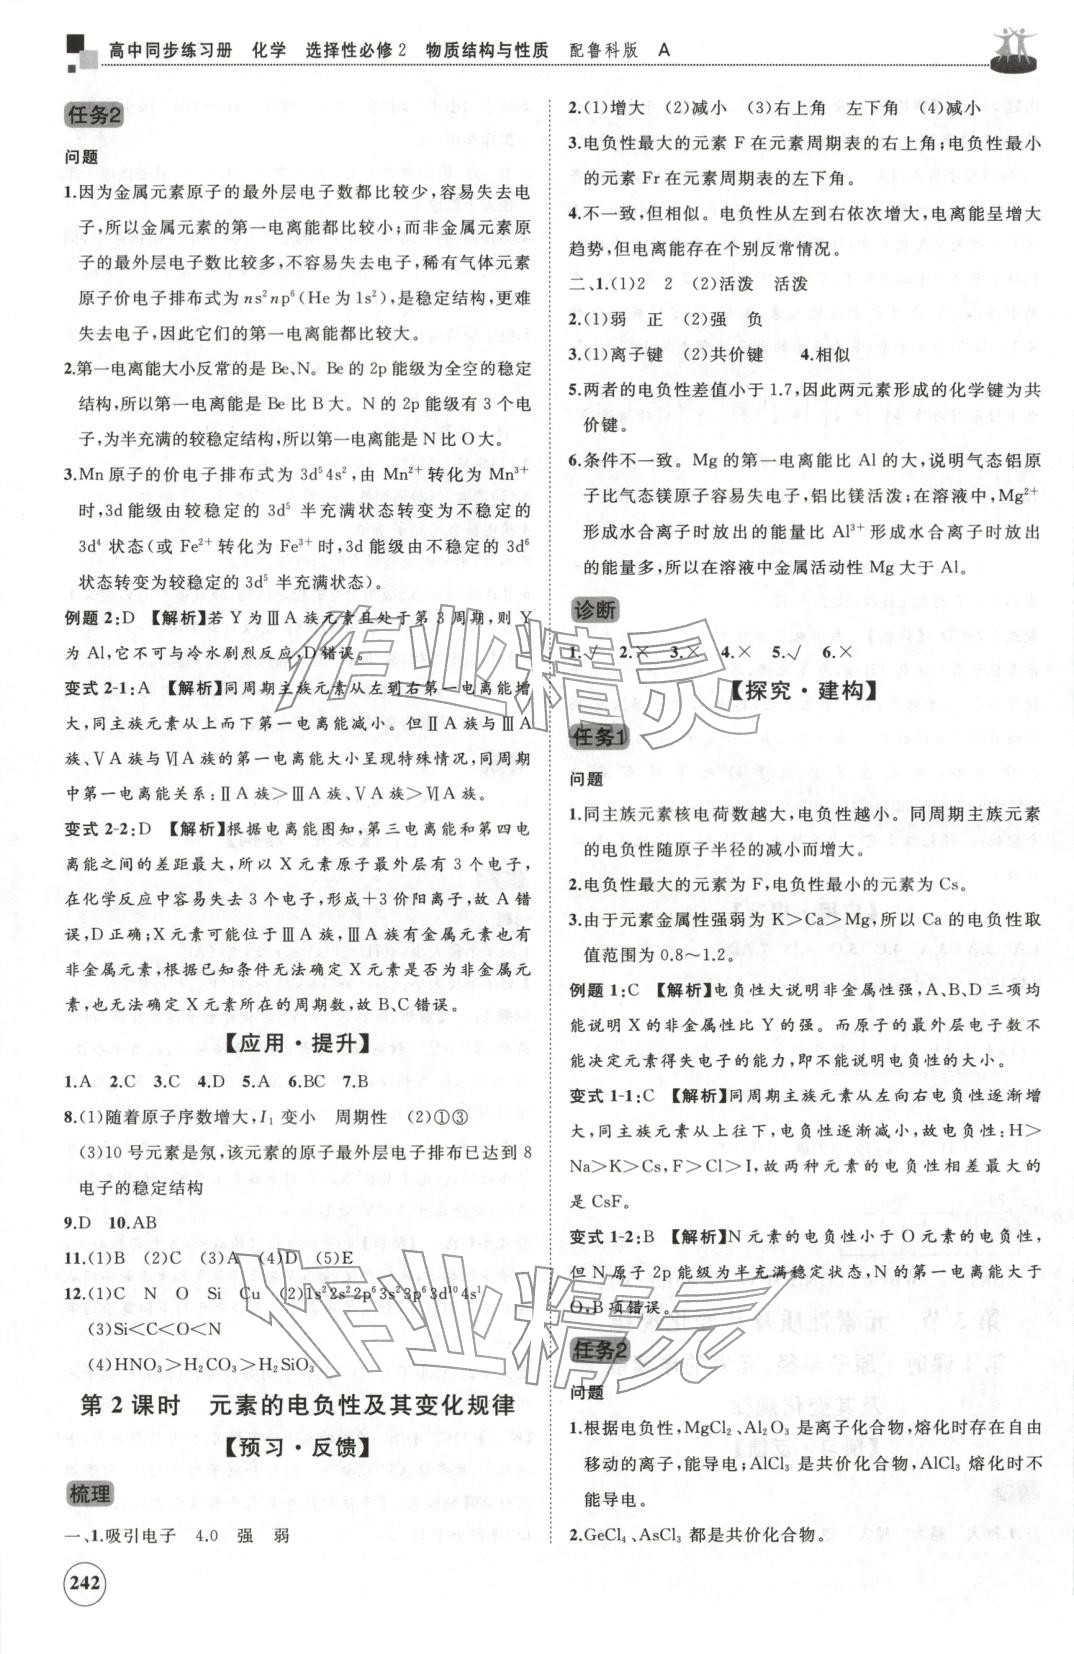 高中同步练习册 化学 选择性必修2 物质结构与性质 配鲁科版 A
任务2
问题
1.因为金属元素原子的最外层电子数都比较少,容易失去电
子,所以金属元素的第一电离能都比较小;而非金属元素原
子的最外层电子数比较多,不容易失去电子,稀有气体元素
原子价电子排布式为ns²np⁶(He为1s²),是稳定结构,更难
失去电子,因此它们的第一电离能都比较大。
2.第一电离能大小反常的是Be、N。Be的2p能级为全空的稳定
结构,所以第一电离能是Be比B大。N的2p能级有3个电
子,为半充满的较稳定结构,所以第一电离能是N比O大。
3.Mn原子的价电子排布式为3d⁵4s²,由Mn²⁺转化为Mn³⁺
时,3d能级由较稳定的3d⁵半充满状态转变为不稳定的
3d⁴状态(或Fe²⁺转化为Fe³⁺时,3d能级由不稳定的3d⁶
状态转变为较稳定的3d⁵半充满状态)。
例题2:D 【解析】若Y为ⅢA族元素且处于第3周期,则Y
为Al,它不可与冷水剧烈反应,D错误。
变式2-1:A 【解析】同周期主族元素从左到右第一电离能增
大,同主族元素从上而下第一电离能减小。但ⅡA族与ⅢA
族、ⅤA族与ⅥA族的第一电离能大小呈现特殊情况,同周期
中第一电离能关系:ⅡA族>ⅢA族、ⅤA族>ⅥA族。
变式2-2:D 【解析】根据电离能图知,第三电离能和第四电
离能之间的差距最大,所以X元素原子最外层有3个电子,
在化学反应中容易失去3个电子,形成+3价阳离子,故A错
误,D正确;X元素可能位于ⅢA族,ⅢA族有金属元素也有
非金属元素,根据已知条件无法确定X元素是否为非金属元
素,也无法确定X元素所在的周期数,故B、C错误。
【应用·提升】
1.A 2.C 3.C 4.D 5.A 6.BC 7.B
8.(1)随着原子序数增大,I₁变小 周期性 (2)①③
(3)10号元素是氖,该元素的原子最外层电子排布已达到8
电子的稳定结构
9.D 10.AB
11.(1)B (2)C (3)A (4)D (5)E
12.(1)C N O Si Cu (2)1s²2s²2p⁶3s²3p⁶3d¹⁰4s¹
(3)Si<C<O<N
(4)HNO₃>H₂CO₃>H₂SiO₃
第2课时 元素的电负性及其变化规律
【预习·反馈】
梳理
一、1.吸引电子 4.0 强 弱
242
2.(1)增大 (2)减小 (3)右上角 左下角 (4)减小
3.电负性最大的元素F在元素周期表的右上角;电负性最小
的元素Fr在元素周期表的左下角。
4.不一致,但相似。电负性从左到右依次增大,电离能呈增大
趋势,但电离能存在个别反常情况。
二、1.(1)2 2 (2)活泼 活泼
2.(1)弱 正 (2)强 负
3.(1)离子键 (2)共价键 4.相似
5.两者的电负性差值小于1.7,因此两元素形成的化学键为共
价键。
6.条件不一致。Mg的第一电离能比Al的大,说明气态铝原
子比气态镁原子容易失电子,铝比镁活泼;在溶液中,Mg²⁺
形成水合离子时放出的能量比Al³⁺形成水合离子时放出
的能量多,所以在溶液中金属活动性Mg大于Al。
诊断
1.√ 2.× 3.× 4.× 5.√ 6.×
【探究·建构】
任务1
问题
1.同主族元素核电荷数越大,电负性越小。同周期主族元素
的电负性随原子半径的减小而增大。
2.电负性最大的元素为F,电负性最小的元素为Cs。
3.由于元素金属性强弱为K>Ca>Mg,所以Ca的电负性取
值范围为0.8~1.2。
例题1:C 【解析】电负性大说明非金属性强,A、B、D三项均
能说明X的非金属性比Y的强。而原子的最外层电子数不
能决定元素得失电子的能力,即不能说明电负性的大小。
变式1-1:C 【解析】同周期主族元素从左向右电负性逐渐增
大,同主族元素从上往下,电负性逐渐减小,故电负性:H>
Na>K>Cs,F>Cl>I,故两种元素的电负性相差最大的
是CsF。
变式1-2:B 【解析】N元素的电负性小于O元素的电负性,
但N原子2p能级为半充满稳定状态,N的第一电离能大于
O,B项错误。
任务2
问题
1.根据电负性,MgCl₂、Al₂O₃是离子化合物,熔化时存在自由
移动的离子,能导电;AlCl₃是共价化合物,AlCl₃熔化时不
能导电。
2.GeCl₄、AsCl₃都是共价化合物。
作业精灵
作业精灵